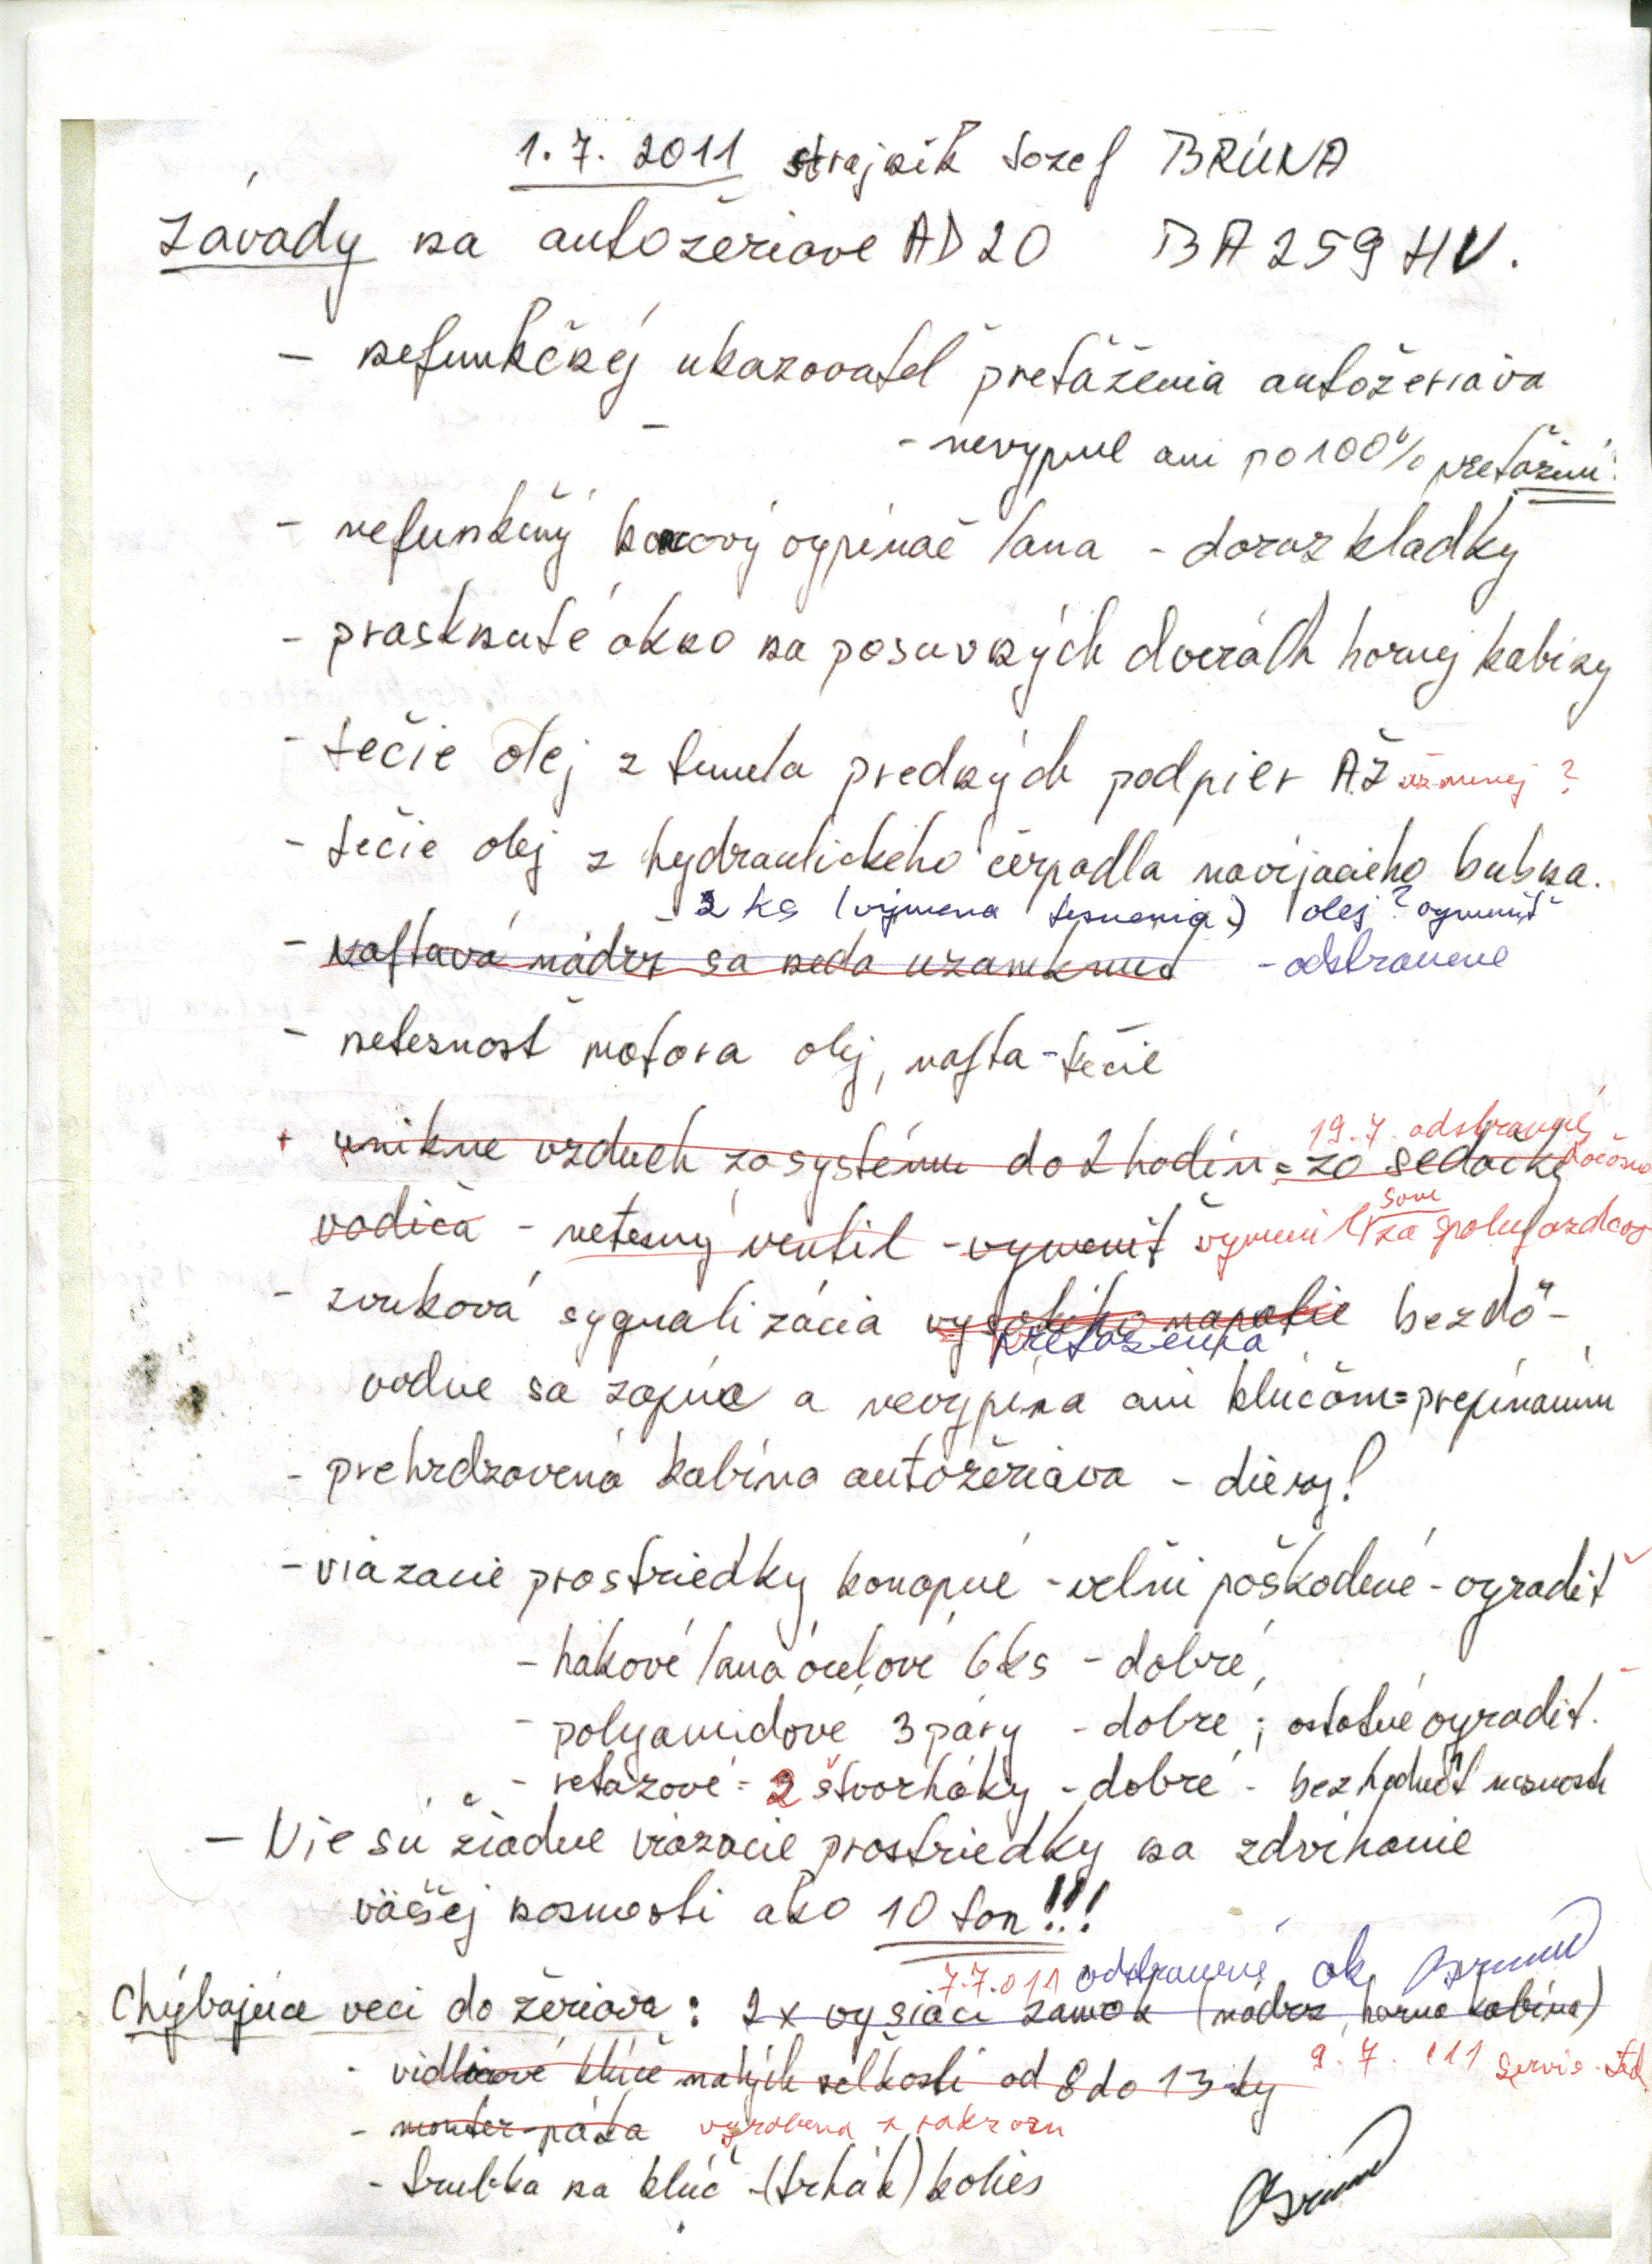 1.7. 2011 strojník Jozef BRÚNA
Závady na autožeriave AD20 BA259HV.
- nefunkčný ukazovateľ preťaženia autožeriava
- nevypne ani po 100% preťažení!
- nefunkčný koncový vypínač lana - doraz kladky
- prasknuté okno na posuvných dverách hornej kabiny
- tečie olej z tunela predných podpier AŽ
- tečie olej z hydraulického čerpadla navijacieho bubna.
- 2 ks (výmena tesnenia) olej? vymeniť
- Naftavá nádrž sa nedá uzamknuť - odstranene
- netesnosť motora olej, nafta - tečie
19.7. odstranené
+ unikne vzduch zo systému do 2 hodín = zo sedačky dočasne
vodiča - netesný ventil - vymeniť vymenil som za spolujazdcov
- zvuková sygnalizácia vysokého napätia bezdô-
preťaženia
vodne sa zapína a nevypína ani kľúčom = prepínaním
- prehrdzavená kabína autožeriava - diery!
- viazacie prostriedky konopné - veľmi poškodené - vyradiť
- hákové laná óceľové 6ks - dobré,
- polyamidové 3 páry - dobré; ostatné vyradiť.
- reťazové - 2 štvorháky - dobré - bez hodnôt nosnosti
- Nie sú žiadne viazacie prostriedky na zdvíhanie
väčšej nosnosti ako 10 ton!!!
7.7.011 odstranené ok
Chýbajúce veci do žeriava: 2x vysiaci zámok (nádrž, horná kabína)
- vidlicové kľúče malých veľkostí od 8 do 13-ky 9.7.011 servis
- montér-páka vyrobena
- trubka na kľúč - (trhák) kolies